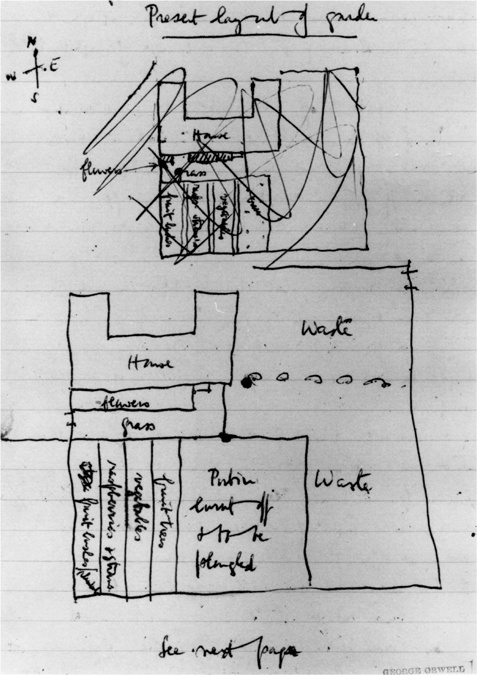 Present layout of garden
N
W E
S
House
flowers
grass
fruit bushes
vegetables
Waste
House
flowers
grass
fruit bushes
raspberries
vegetables
fruit trees
Patin
burnt off
& to be
ploughed
Waste
See next page
GEORGE ORWELL